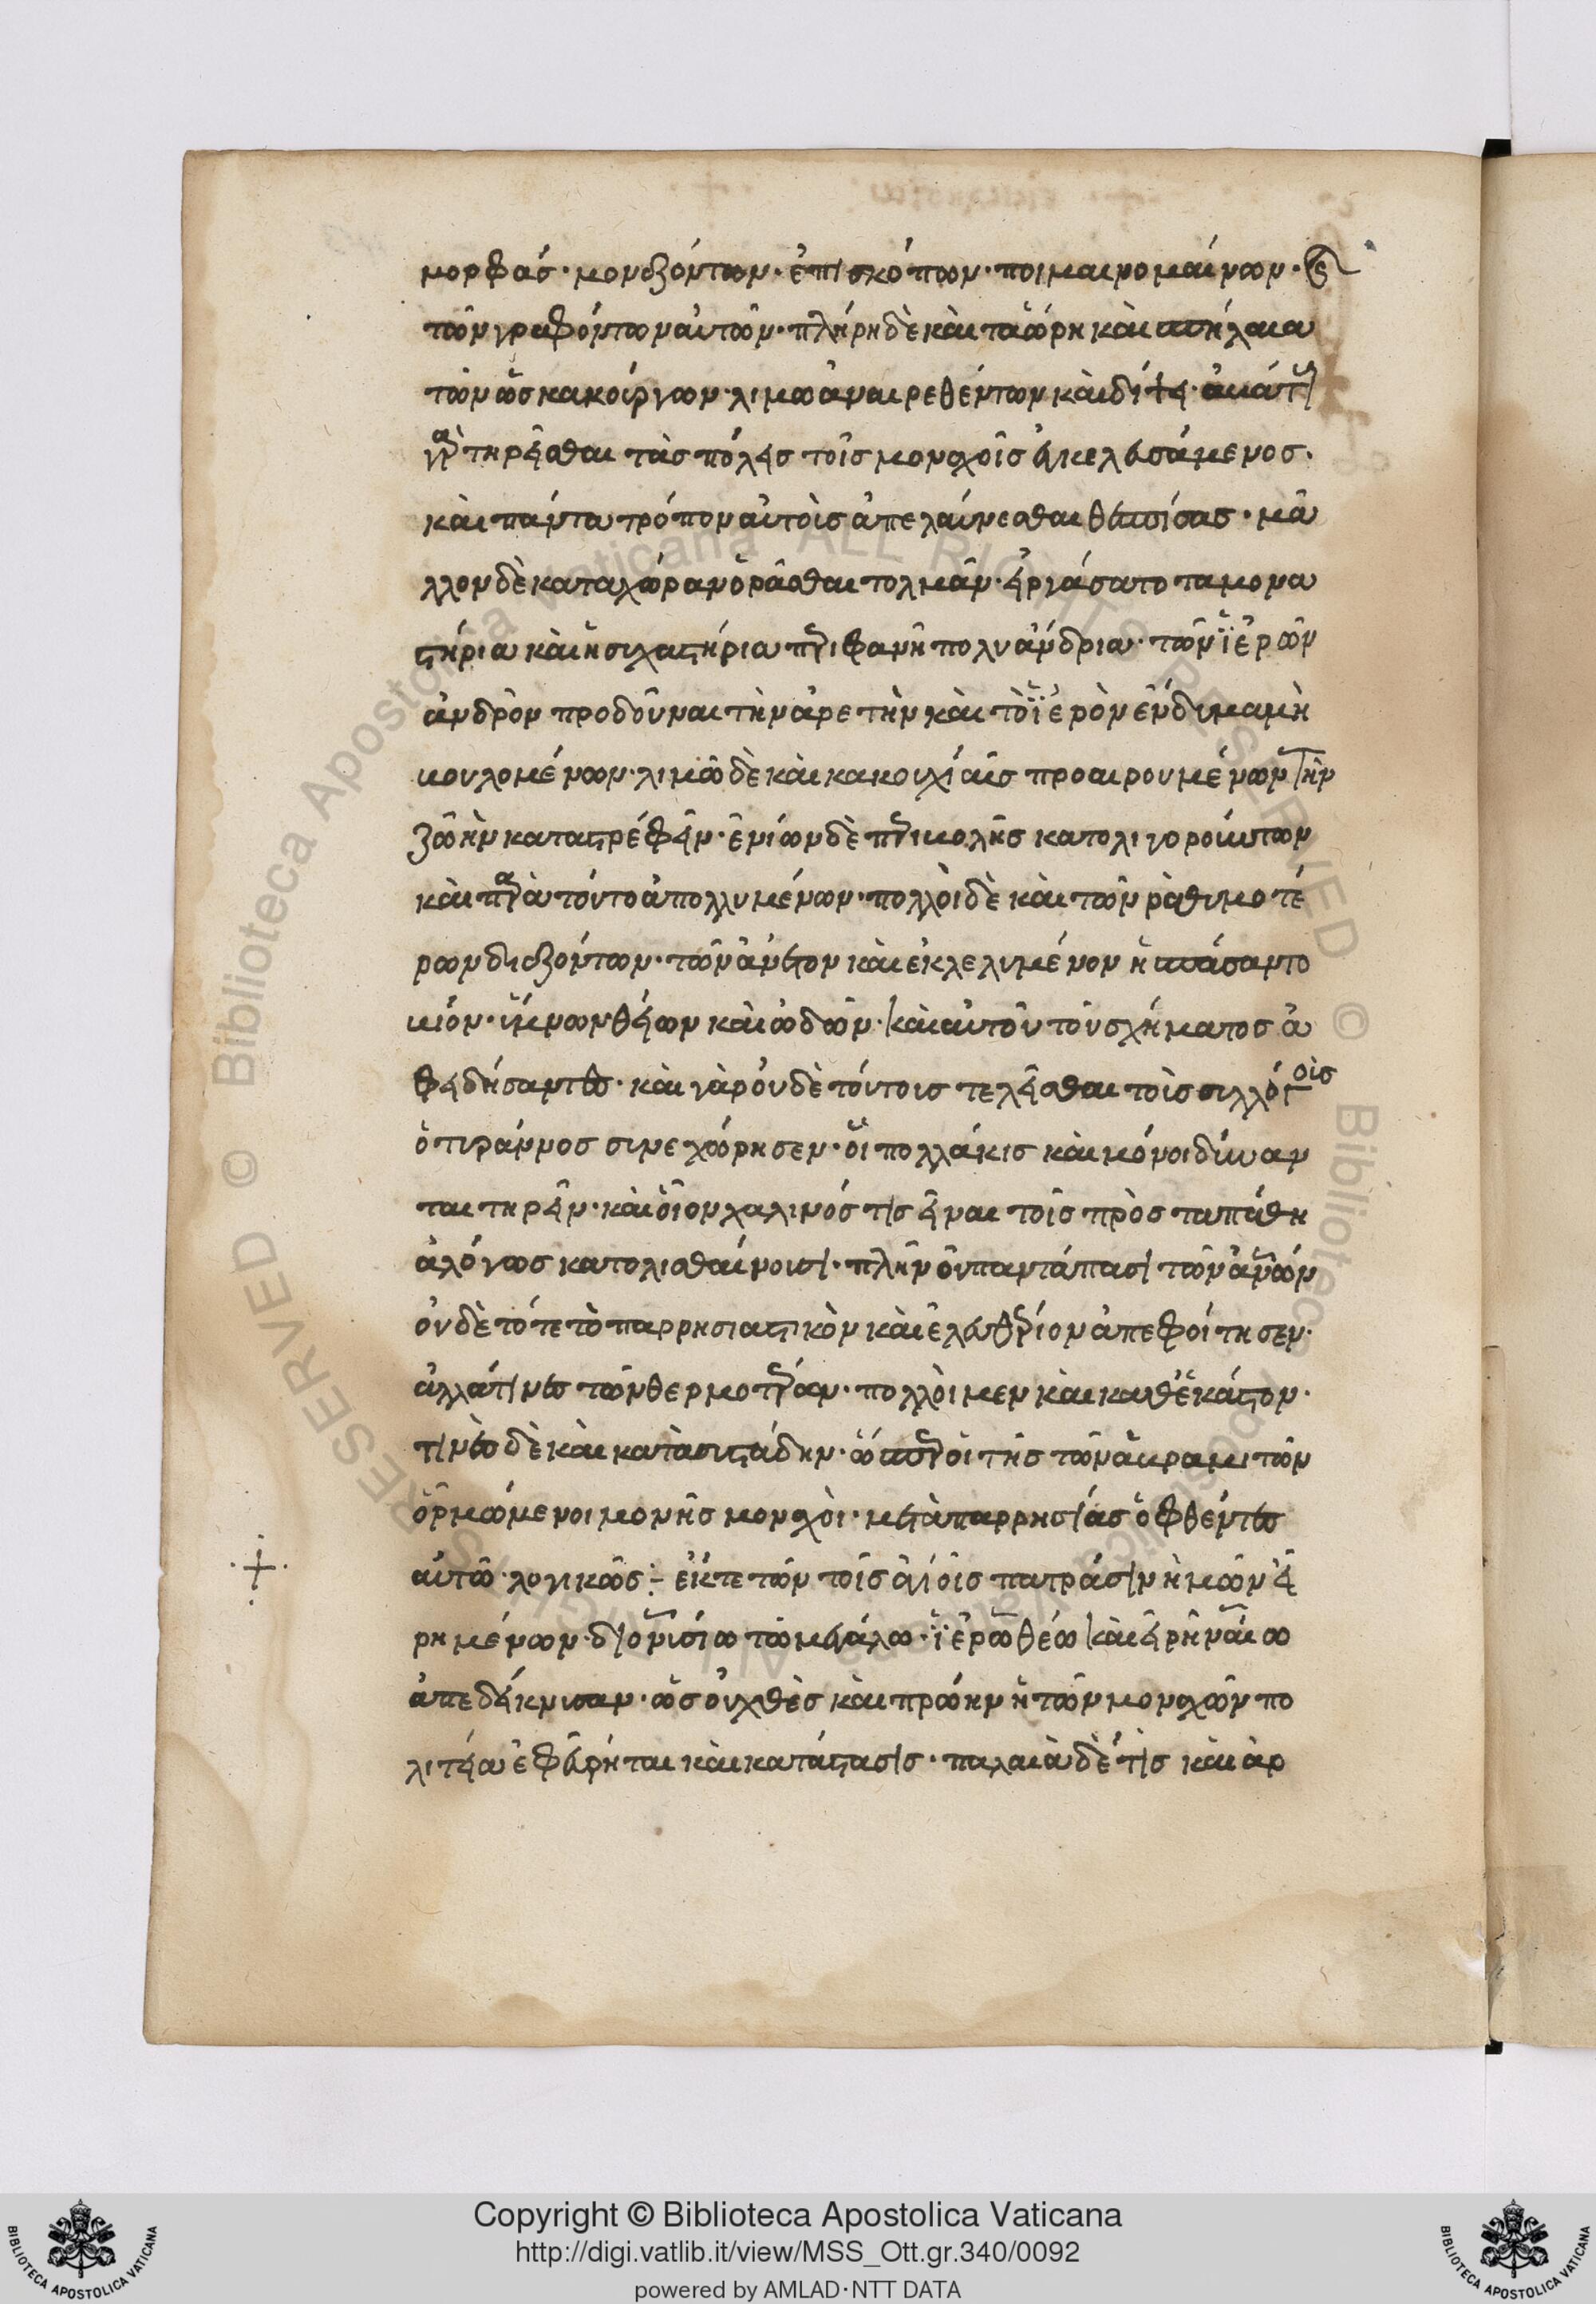 μορφάσ· μοναζόντων· ἐπισκόπων· ποιμαινομαίνων· καὶ
τῶν γραφόντων αὐτῶν· πλήρη δὲ καὶ τα ὥρη καὶ σπήλαια
τῶν ὡς κακούργων· λιμῶ ἀναιρεθέντων καὶ δίψει· ἀβάτους
γὰρ τηρεῖσθαι τὰσ πόλεισ τοῖσ μοναχοῖσ ἐγκελευσάμενοσ·
καὶ πάντα τρόπον αὐτοὶσ ἀπελαύνεσθαι θεσπίσασ· μᾶ
λλον δὲ κατα χώραν ὁρᾶσθαι τολμᾶν· εἰργάσατο τα μονα
στήρια καὶ ἡσυχαστήρια περιφανῆ πολυάνδρια· τῶν ἱερῶν
ἀνδρὸν προδοῦναι τὴν ἀρετὴν καὶ τὸ ἱερὸν ἔνδυμα μὴ
βουλομένων· λιμῶ δὲ καὶ κακουχίαισ προαιρουμένων τὴν
ζωὴν καταστρέφειν· ἐνίων δὲ περιβολῆσ κατολιγορούντων
καὶ παρὰ τοῦτο ἀπολλυμένων· πολλοὶ δὲ καὶ τῶν ραθυμοτέ
ρων διαζόντων· τῶν ἄνετον καὶ ἐκλελυμένον ἠσπάσαντο
βίον· ὕμνων θείων καὶ ὠδῶν· καὶ αὐτοῦ τοῦ σχήματοσ ἀ
φειδήσαντεσ· καὶ γὰρ οὐδὲ τούτοισ τελεῖσθαι τοὶσ συλλόγοισ
ὁ τύραννοσ συνεχώρησεν· οἳ πολλάκισ καὶ μόνοι δύναν
ται τηρεῖν· καὶ οἷον χαλινόσ τισ εἶναι τοῖσ πρὸσ τα πάθη
ἀλόγωσ κατολισθαίνουσι· πλὴν οὐ παντάπασι τῶν ἀνῶν
οὐδὲ τότε τὸ παρρησιαστικὸν καὶ ἐλευθέριον ἀπεφοίτησεν·
ἀλλά τινεσ τῶν θερμοτέραν· πολλοὶ μεν καὶ καθ᾽ ἕκαστον·
τινὲσ δὲ καὶ κατὰ συστάδην· ὥσπερ οἱ τῆσ τῶν ἀβραμιτῶν
ὁρμώμενοι μονῆσ μοναχοὶ· μετὰ παρρησίασ ὀφθέντεσ
αὐτῶ· λογικῶσ :- ἐκ τε τῶν τοῖσ ἁγίοισ πατράσιν ἡμῶν εἰ
ρημένων· διονυσίω τῶ μεγάλω· ἱεροθέω καὶ εἰρηναίω
ἀπεδείκνυσαν· ὡσ οὐ χθὲσ καὶ πρώην ἡ τῶν μοναχῶν πο
λιτεία ἐφεύρηται καὶ κατάστασισ· παλαιὰ δέ τισ καὶ ἀρ
Copyright © Biblioteca Apostolica Vaticana
http://digi.vatlib.it/view/MSS_Ott.gr.340/0092
powered by AMLAD·NTT DATA